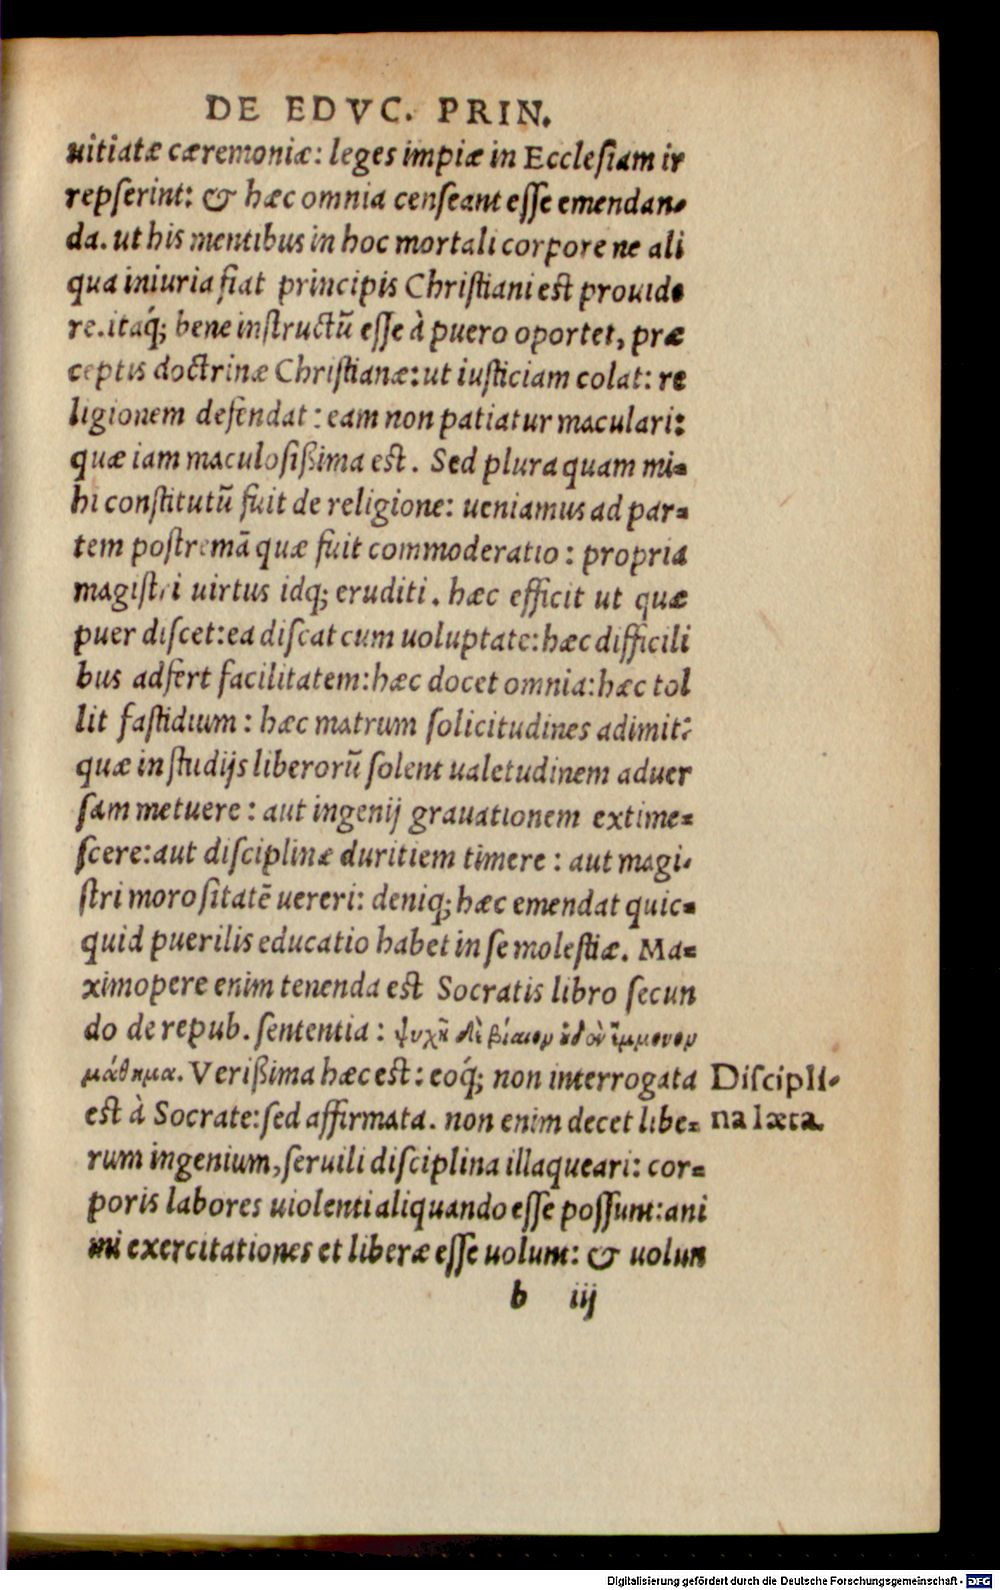 DE EDVC. PRIN.
uitiatæ cæremoniæ: leges impiæ in Ecclesiam ir
repserint: & hæc omnia censeant esse emendan-
da. ut his mentibus in hoc mortali corpore ne ali
qua iniuria fiat principis Christiani est prouide
re. itaq́; bene instructū esse à puero oportet, præ
ceptis doctrinæ Christianæ: ut iusticiam colat: re
ligionem defendat: eam non patiatur maculari:
quæ iam maculosißima est. Sed plura quam mi-
hi constitutū fuit de religione: ueniamus ad par-
tem postremā quæ fuit commoderatio: propria
magistri uirtus idq; eruditi. hæc efficit ut quæ
puer discet: ea discat cum uoluptate: hæc difficili
bus adfert facilitatem: hæc docet omnia: hæc tol
lit fastidium: hæc matrum solicitudines adimit:
quæ in studijs liberorū solent ualetudinem aduer
sam metuere: aut ingenij grauationem extime-
scere: aut disciplinæ duritiem timere: aut magi-
stri morositatē uereri: deniq; hæc emendat quic-
quid puerilis educatio habet in se molestiæ. Ma-
ximopere enim tenenda est Socratis libro secun
do de repub. sententia: ψυχῆ δὲ βίαιον ἐδὸν ἔμμονον
μάθημα. Verißima hæc est: eoq́; non interrogata
est à Socrate: sed affirmata. non enim decet libe-
rum ingenium, seruili disciplina illaqueari: cor-
poris labores uiolenti aliquando esse possunt: ani
mi exercitationes et liberæ esse uolunt: & uolun
b iij
Discipli-
na læta.
Digitalisierung gefördert durch die Deutsche Forschungsgemeinschaft - DFG